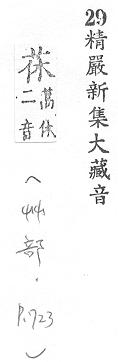 29精嚴新集大藏音
茠
萬休
二音
(艸部.P.723)